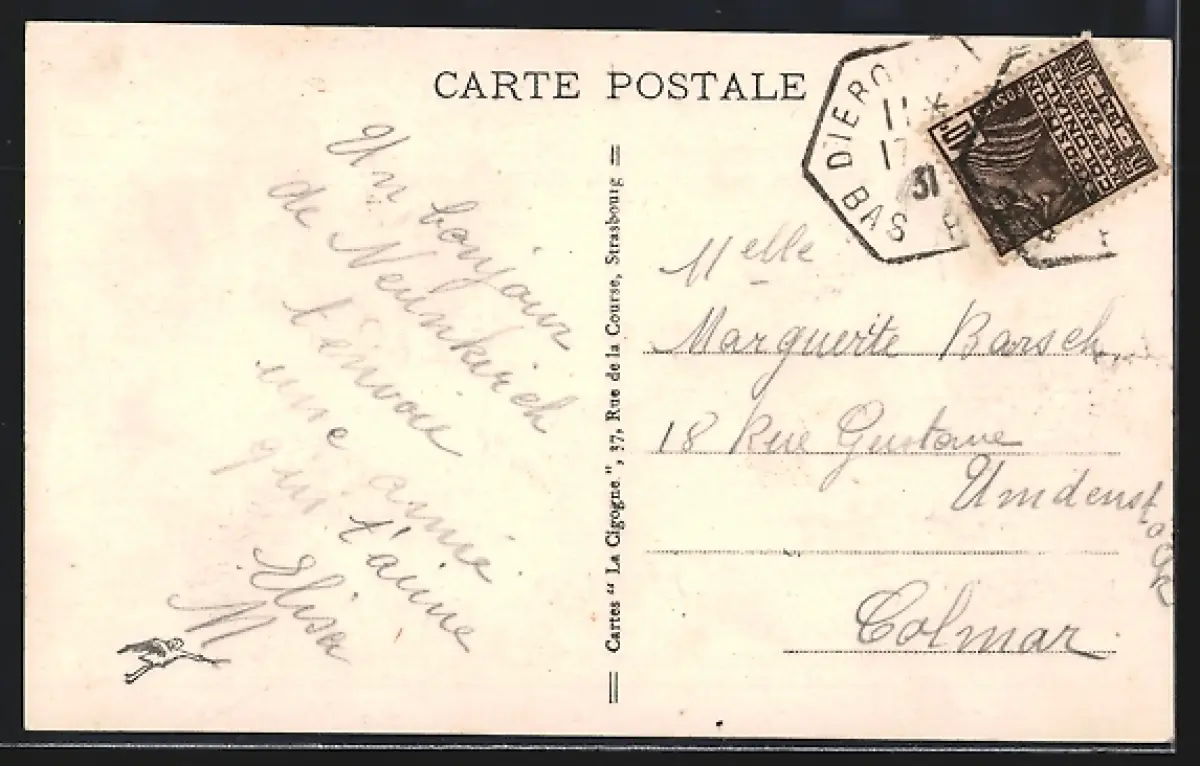 CARTE POSTALE
Un bonjour
de Neunkirch
t'envoie
une amie
qui t'aime
Elisa
M
Cartes "La Cigogne", 37, Rue de la Course, Strasbourg
BAS
11
31
POSTES
Melle
Marguerite Barsch
18 Rue Gustave
Umdenstock
Colmar